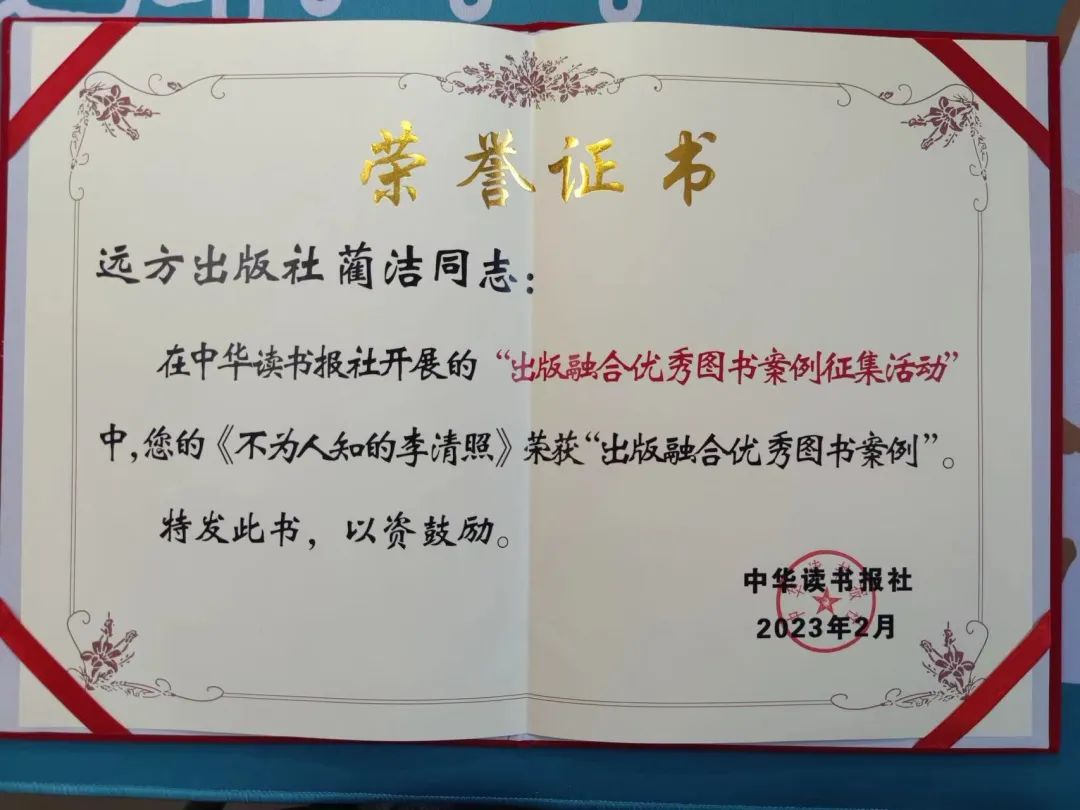 荣誉证书
远方出版社蔺洁同志：
在中华读书报社开展的“出版融合优秀图书案例征集活动”
中，您的《不为人知的李清照》荣获“出版融合优秀图书案例”。
特发此书，以资鼓励。
中华读书报社
2023年2月